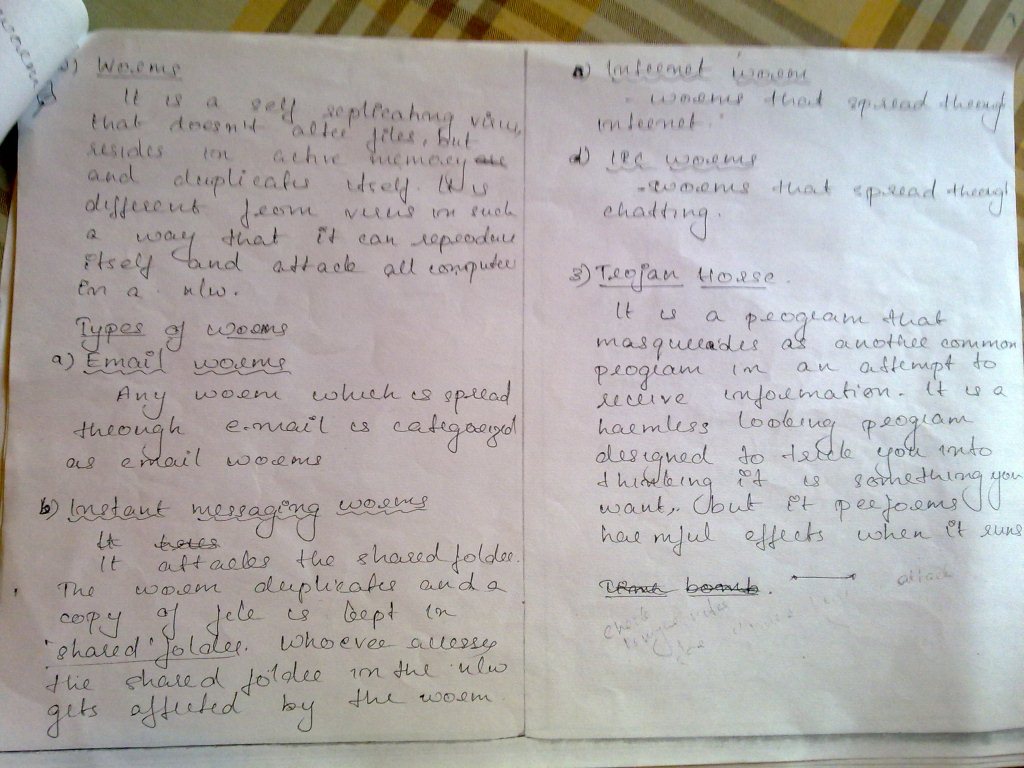 2) Worms
It is a self replicating virus,
that doesn't alter files, but
resides in active memory
and duplicates itself. It is
different from virus in such
a way that it can reproduce
itself and attack all computer
in a n/w.
Types of worms
a) Email worms
Any worm which is spread
through e-mail is categorized
as email worms
b) Instant messaging worms
It
It attacks the shared folder.
The worm duplicates and a
copy of file is kept in
'shared' folder. Whoever accesses
the shared folder in the n/w
gets affected by the worm.
Internet worm
- worms that spread through
internet.
d) IRC worms
- worms that spread through
chatting.
3) Trojan Horse.
It is a program that
masquerades as another common
program in an attempt to
receive information. It is a
harmless looking program
designed to trick you into
thinking it is something you
want, but it performs
harmful effects when it runs
Time bomb.
attack